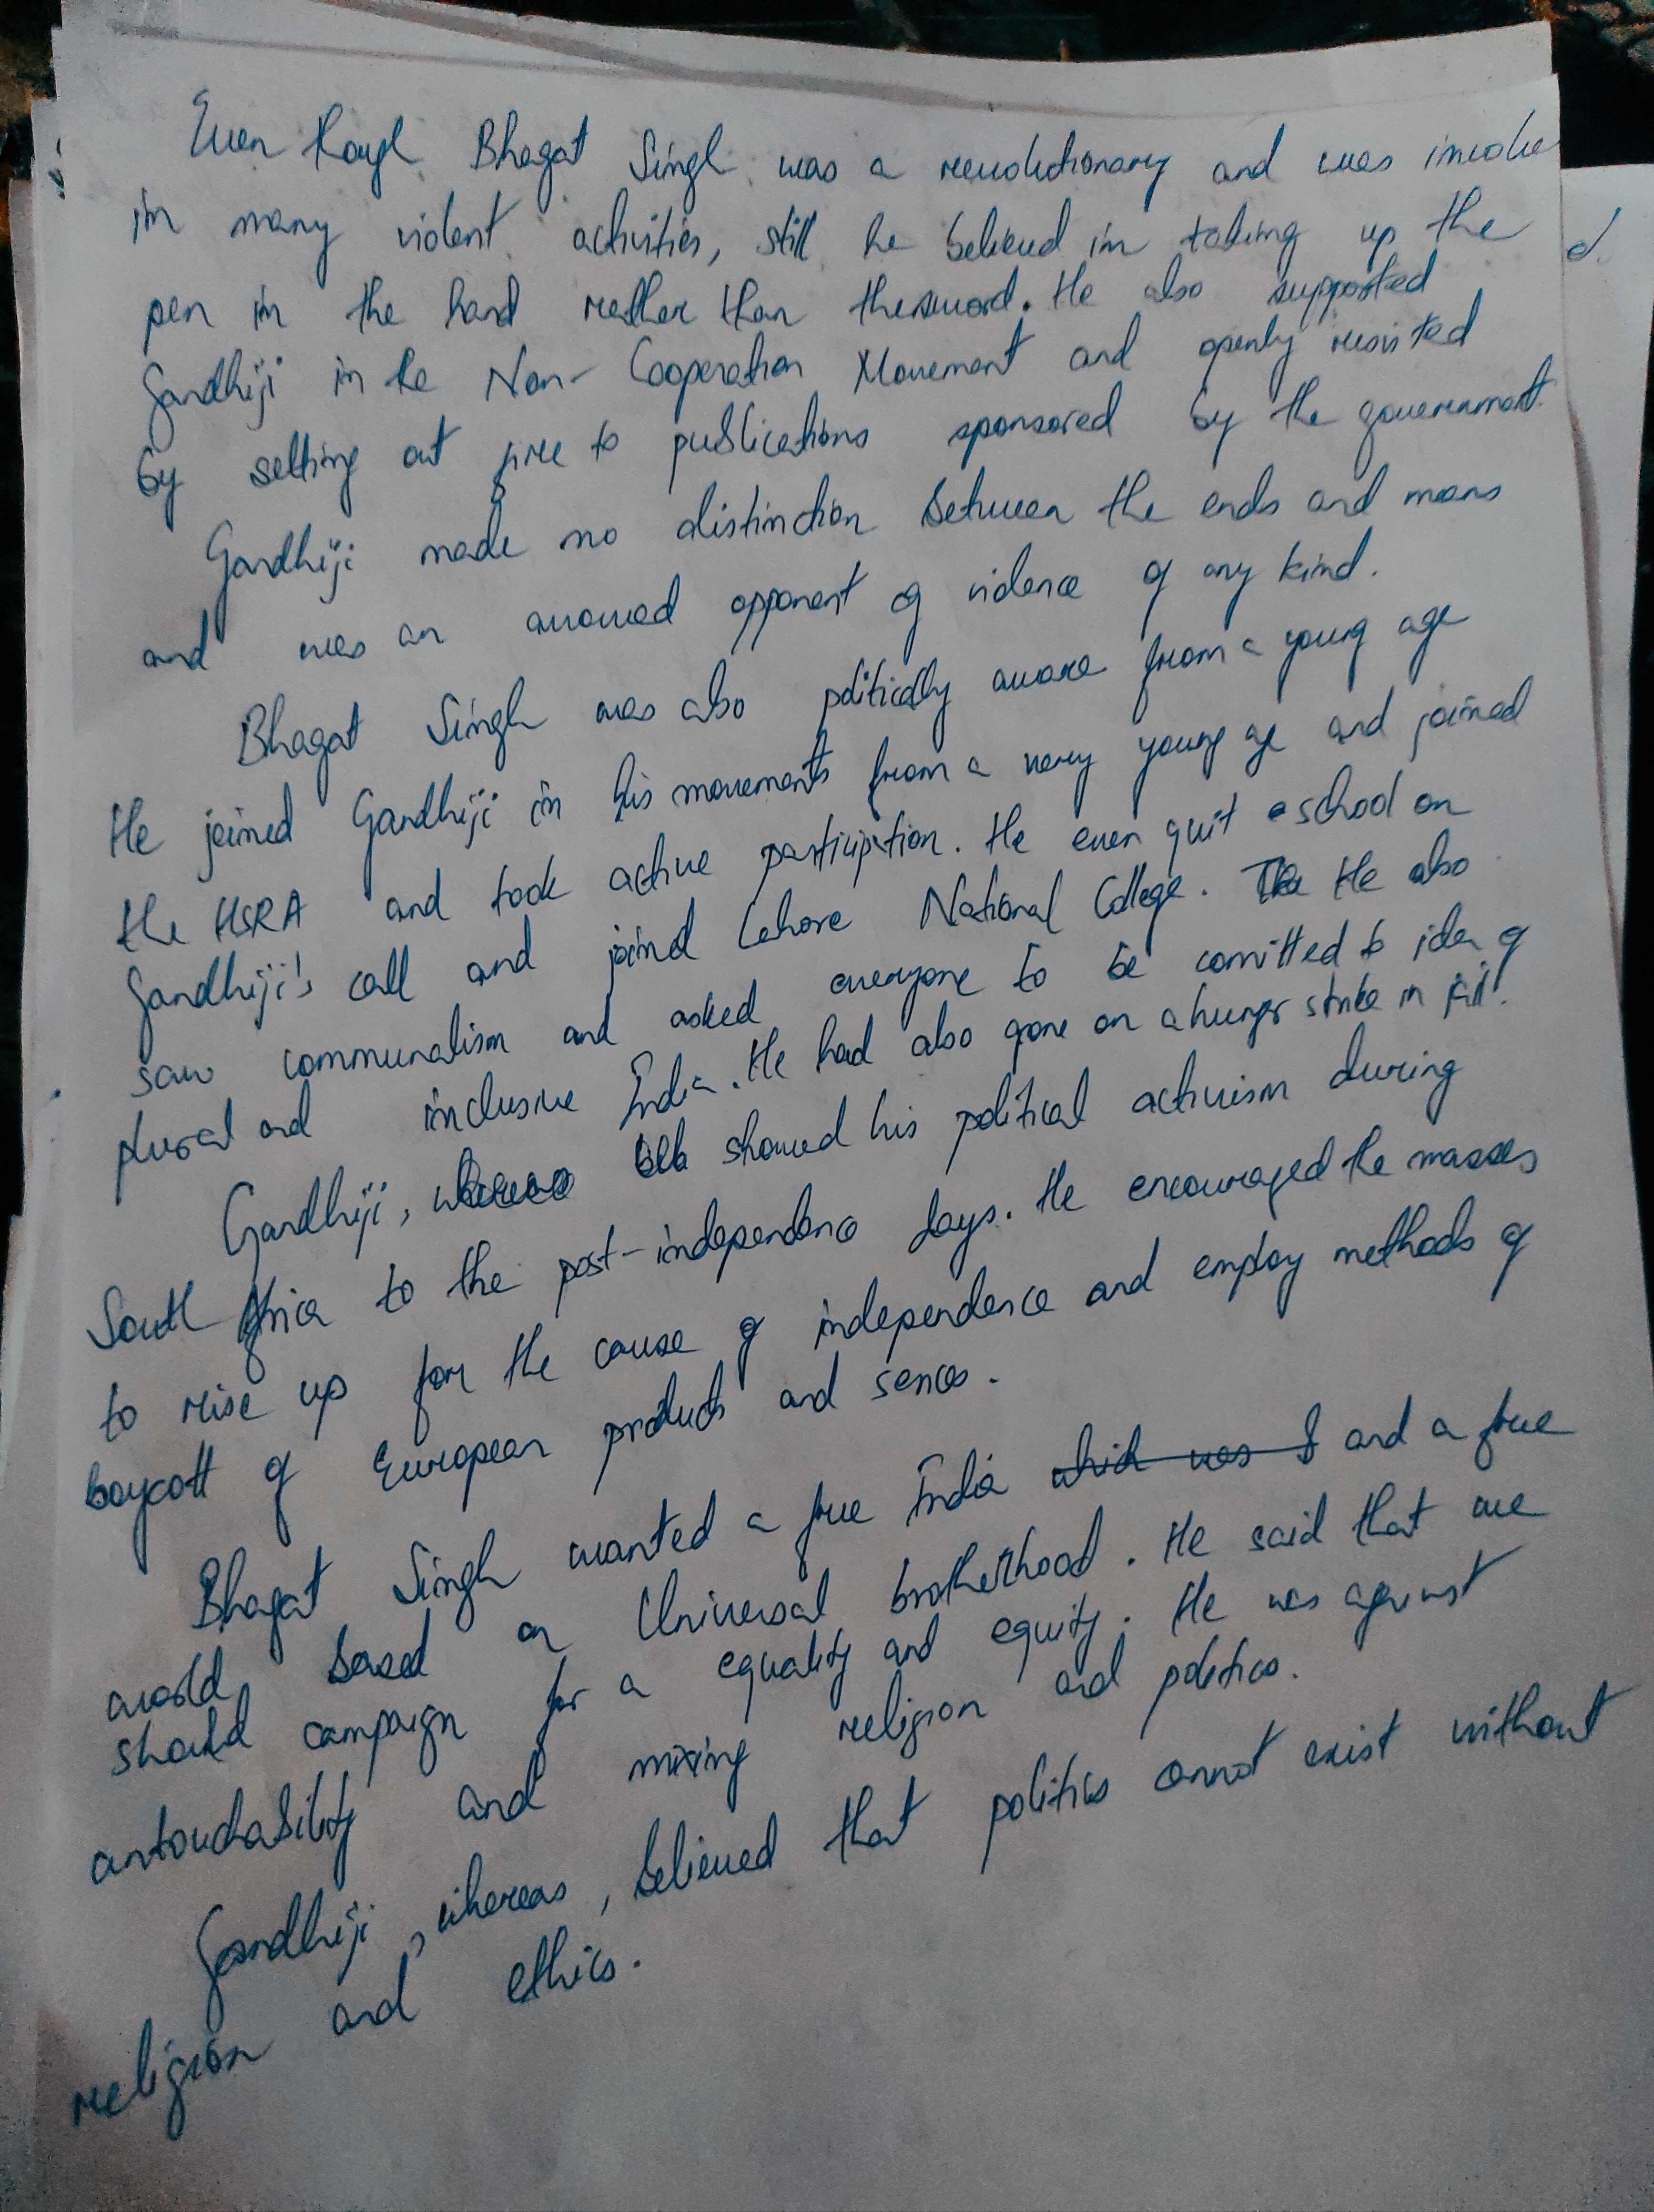 Even though Bhagat Singh was a revolutionary and was involved
in many violent activities, still he believed in taking up the
pen in the hand rather than the sword. He also supported
Gandhiji in the Non-Cooperation Movement and openly resisted
by setting out fire to publications sponsored by the government.
Gandhiji made no distinction between the ends and means
and was an avowed opponent of violence of any kind.
Bhagat Singh was also politically aware from a young age
He joined Gandhiji in his movements from a very young age and joined
the HSRA and took active participation. He even quit school on
Gandhiji's call and joined Lahore National College. He also
saw communalism and asked everyone to be comitted to idea of
plural and inclusive India. He had also gone on a hunger strike in jail.
Gandhiji, showed his political activism during
South Africa to the post-independence days. He encouraged the masses
to rise up for the cause of independence and employ methods of
boycott of European products and
Bhagat Singh wanted a free India which was and a free
world based on Universal brotherhood. He said that we
should campaign for a equality and equity. He was against
untouchability and mixing religion and politics.
Gandhiji, whereas, believed that politics cannot exist without
religion and ethics.